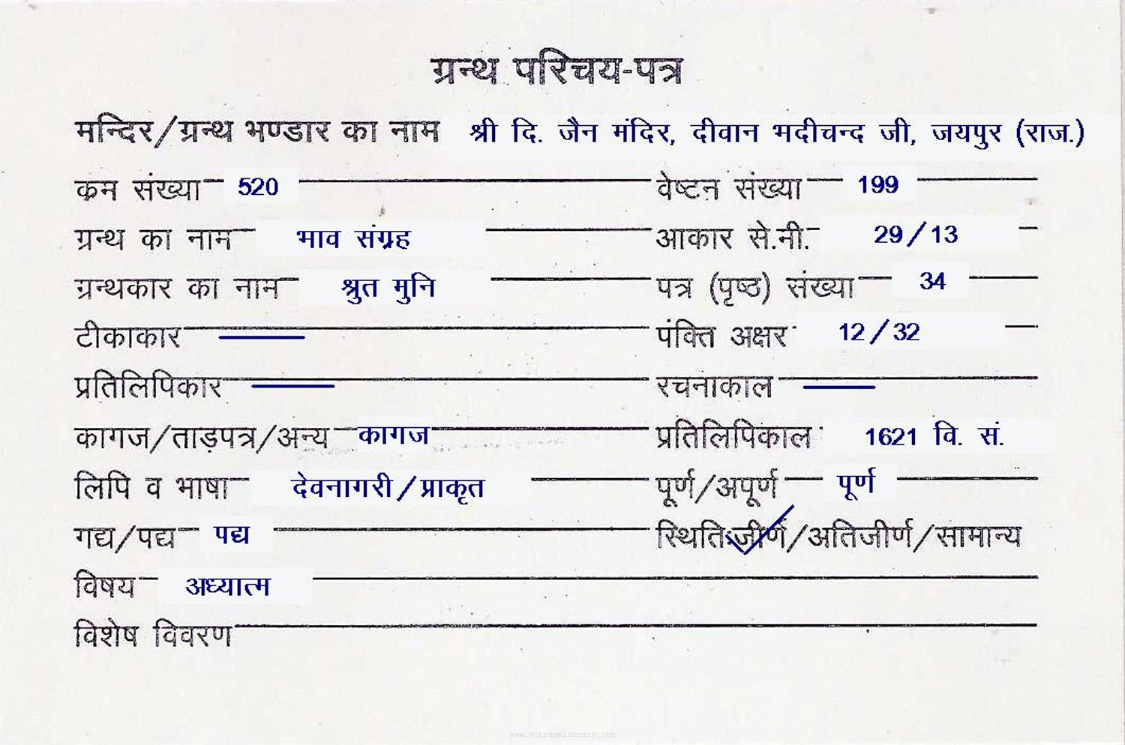 ग्रन्थ परिचय-पत्र
मन्दिर/ग्रन्थ भण्डार का नाम श्री दि. जैन मंदिर, दीवान भदीचन्द जी, जयपुर (राज.)
क्रम संख्या 520 वेष्टन संख्या 199
ग्रन्थ का नाम भाव संग्रह आकार से.मी. 29/13
ग्रन्थकार का नाम श्रुत मुनि पत्र (पृष्ठ) संख्या 34
टीकाकार — पंक्ति अक्षर 12/32
प्रतिलिपिकार — रचनाकाल —
कागज/ताड़पत्र/अन्य कागज प्रतिलिपिकाल 1621 वि. सं.
लिपि व भाषा देवनागरी/प्राकृत पूर्ण/अपूर्ण पूर्ण
गद्य/पद्य पद्य स्थिति:जीर्ण/अतिजीर्ण/सामान्य
विषय अध्यात्म
विशेष विवरण